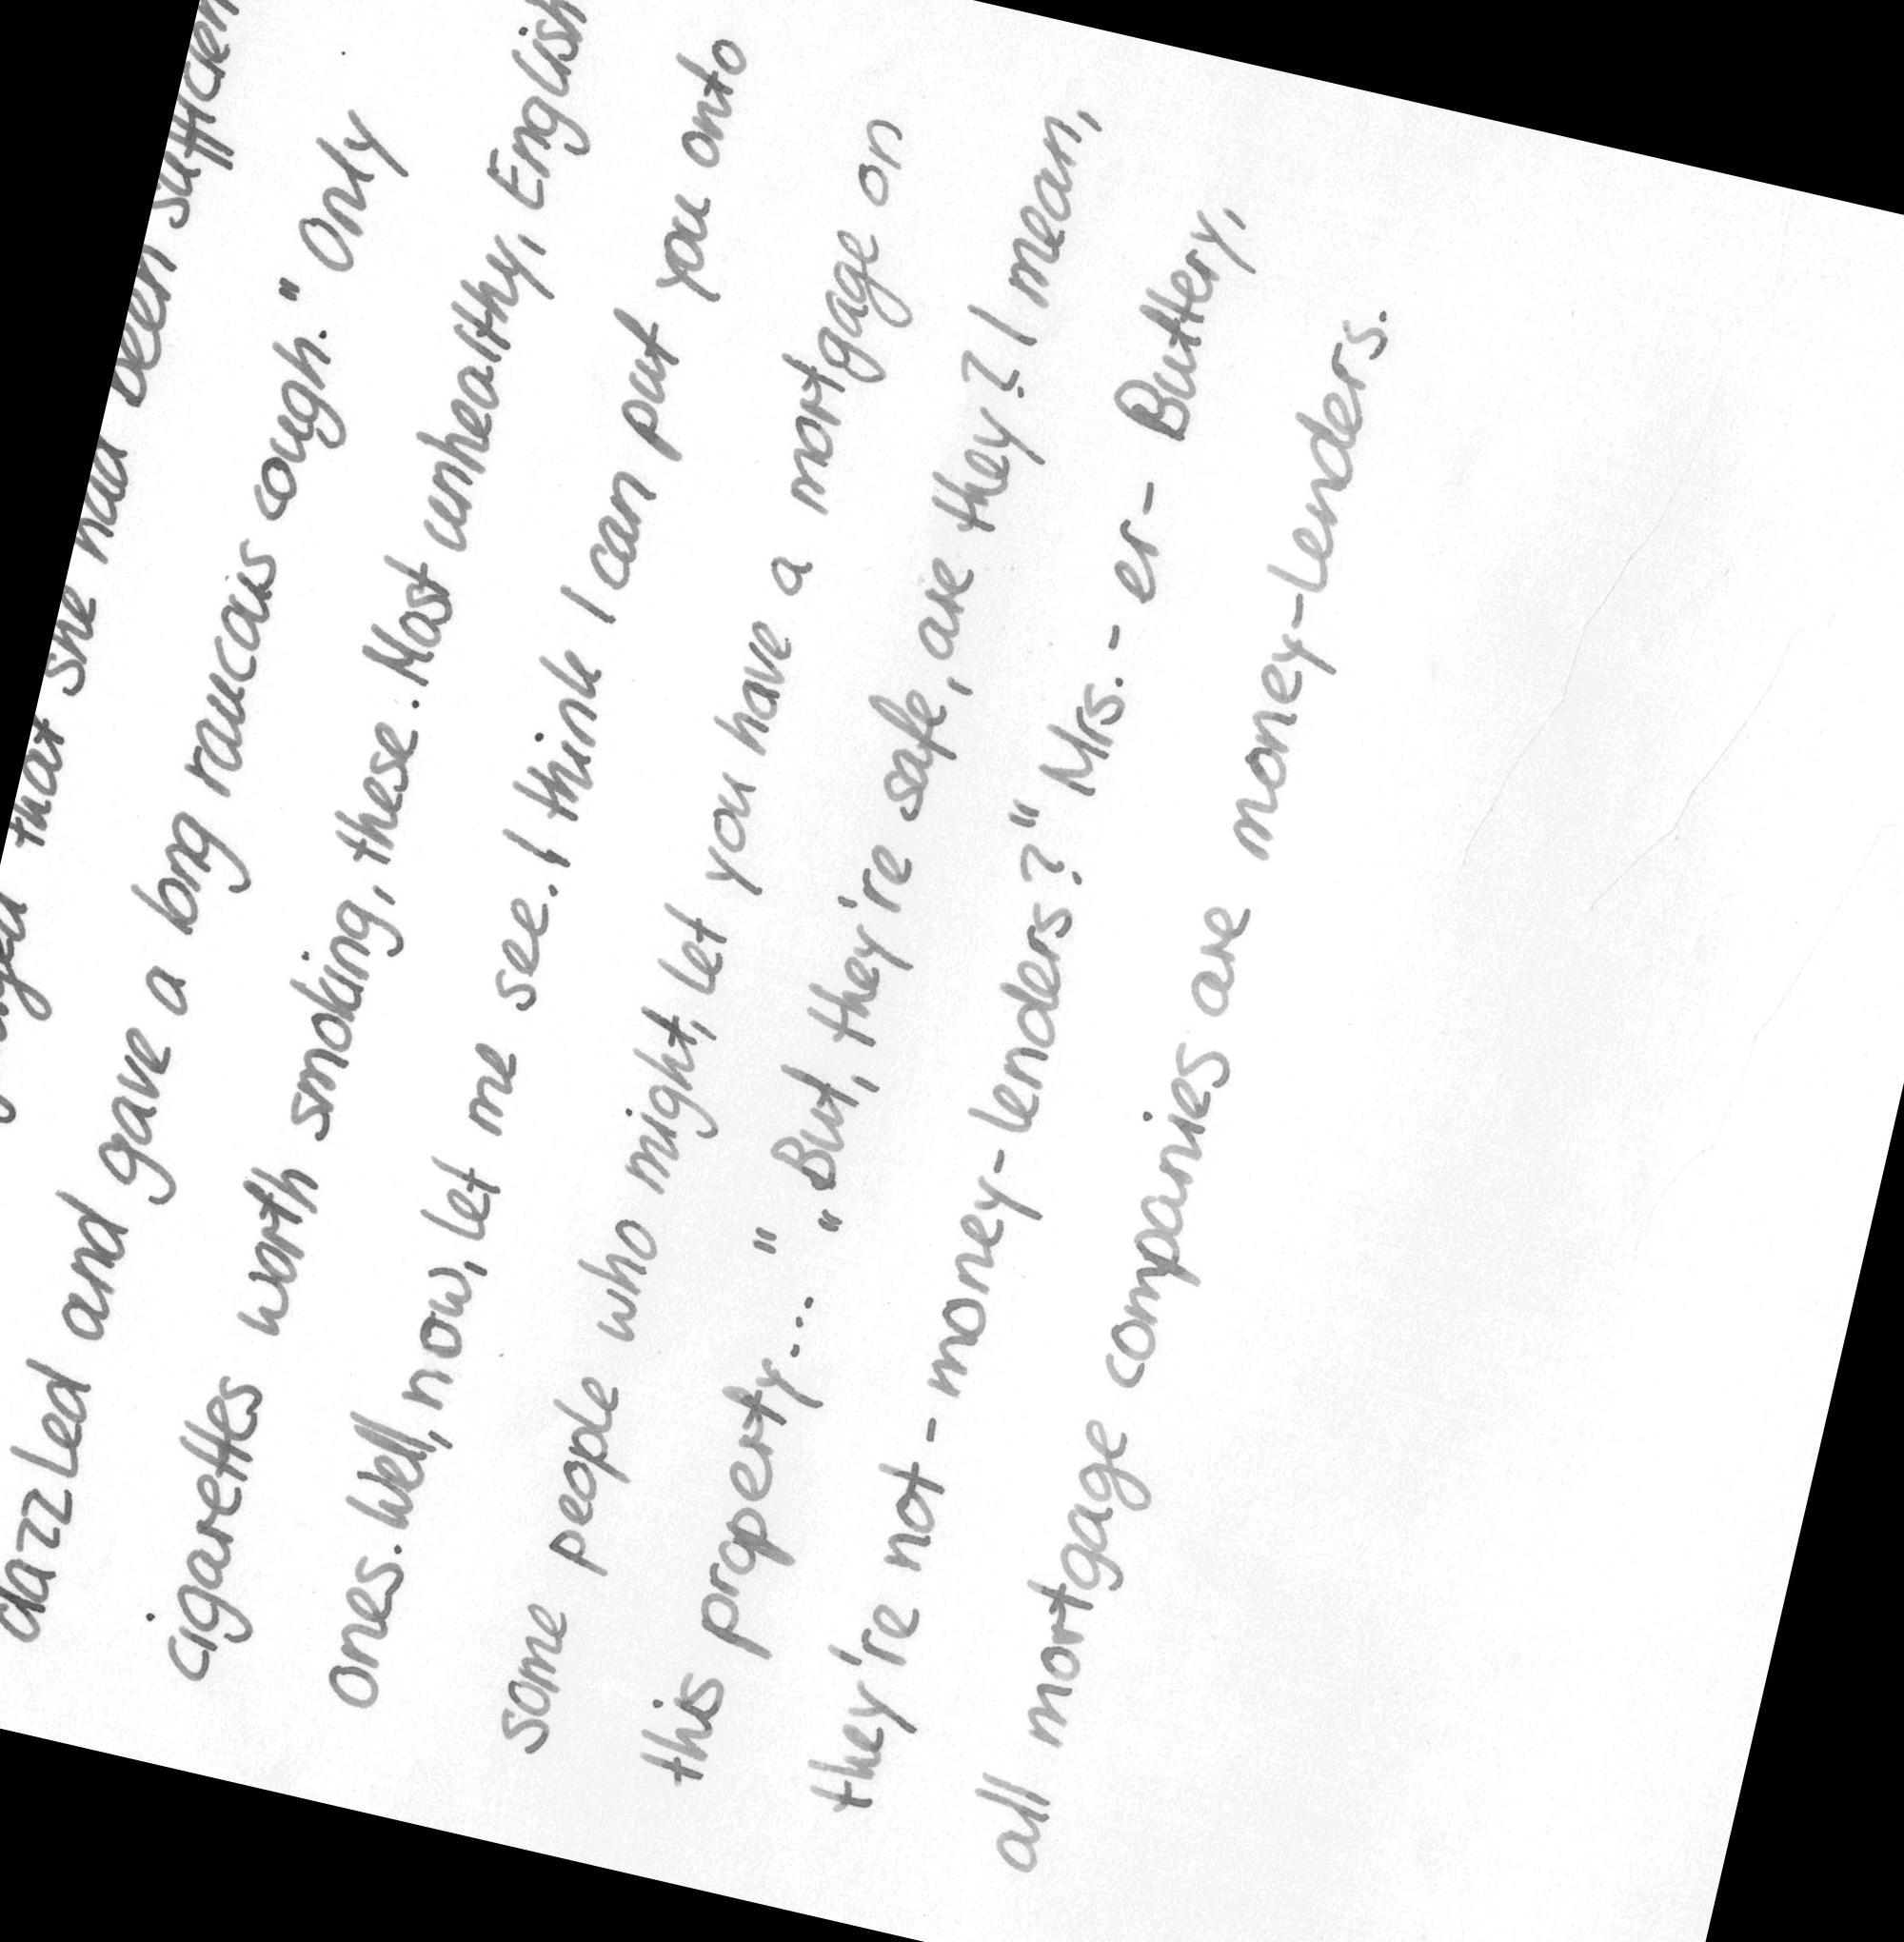 that she had been sufficien
dazzled and gave a long raucous cough." Only
cigarettes worth smoking, these. Most unhealthy, English
ones. Well, now, let me see. I think I can put you onto
some people who might, let you have a mortgage on
this property... " "But, they're safe, are they? I mean,
they're not - money-lenders?" Mrs. - er - Buttery,
all mortgage companies are money-lenders.